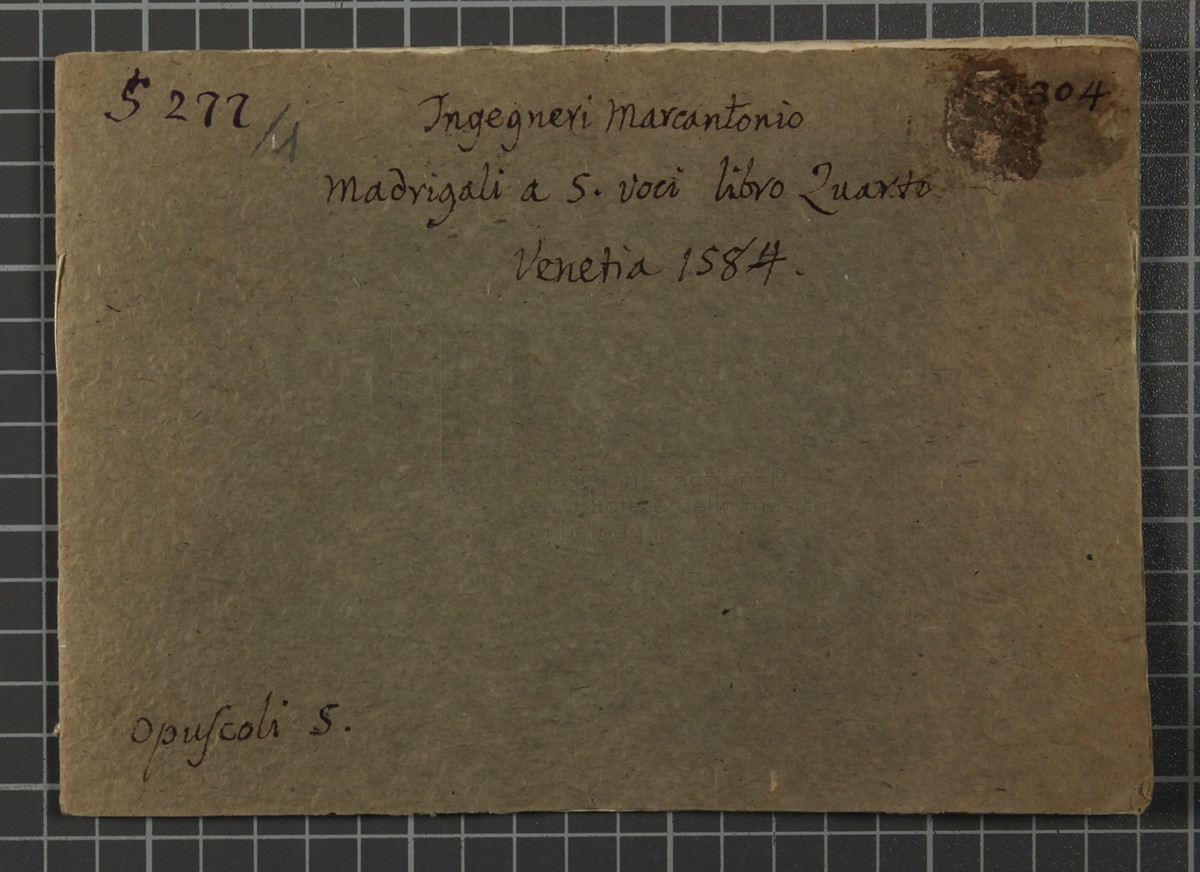 S 277/1
304
Ingegneri Marcantonio
Madrigali a 5. voci libro Quarto
Venetia 1584.
Opuſcoli 5.